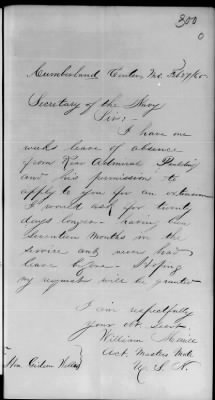 300
Cumberland Centre, Me. Feb 27/65
Secretary of the Navy
Sir;-
I have one
weeks leave of absence
from Rear Admiral
and his permission to
apply to you for an extension
I would ask for twenty
days longer. having been
seventeen months in the
service and never had
leave before. Hoping
my request will be granted
I am respectfully
your obt. Servt.
William
Act. Masters Mate
U. S. N.
Hon. Gideon Welles